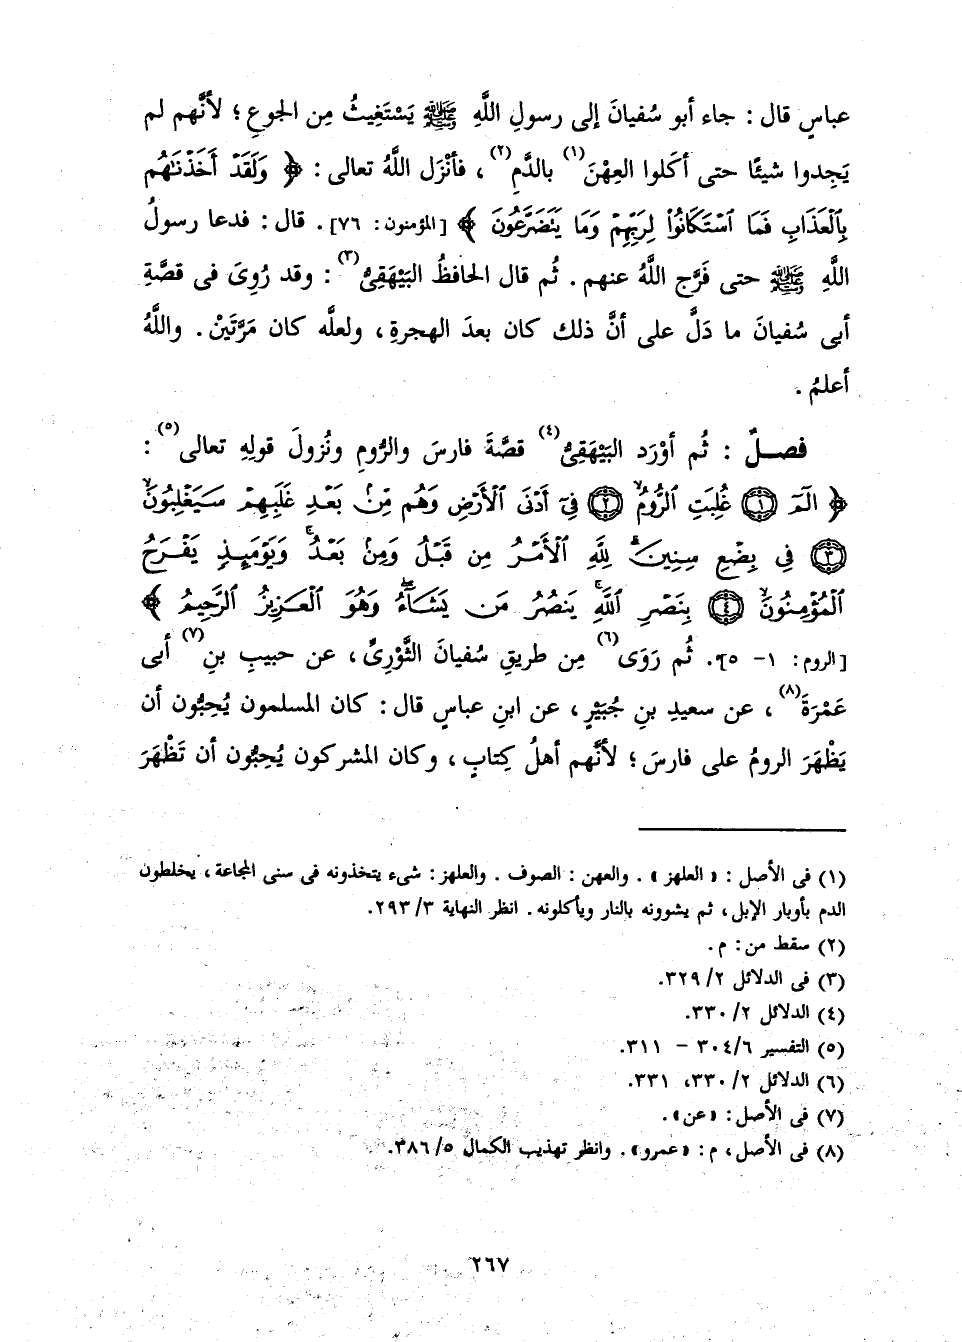 عباسٍ قال : جاء أبو سُفيانَ إلى رسولِ اللَّهِ ﷺ يَسْتَغِيثُ مِن الجوعِ ؛ لأنَّهم لم
يَجِدوا شيئًا حتى أكَلوا العِهْنَ (١) بالدَّمِ (٢) ، فأنْزَل اللَّهُ تعالى : ﴿ وَلَقَدْ أَخَذْنَـٰهُم
بِالْعَذَابِ فَمَا اسْتَكَانُوا لِرَبِّهِمْ وَمَا يَتَضَرَّعُونَ ﴾ [المؤمنون: ٧٦] . قال : فدعا رسولُ
اللَّهِ ﷺ حتى فَرَّج اللَّهُ عنهم . ثُم قال الحافظُ البَيْهَقِىُّ (٣) : وقد رُوِىَ فى قصَّةِ
أبى سُفيانَ ما دَلَّ على أنَّ ذلك كان بعدَ الهجرةِ ، ولعلَّه كان مَرَّتَيْنِ . واللَّهُ
أعلمُ .
فصــلٌ : ثُم أوْرَد البَيْهَقِىُّ (٤) قصَّةَ فارسَ والرُّومِ ونُزولَ قولِهِ تعالى (٥) :
﴿ الٓمٓ ۝١ غُلِبَتِ الرُّومُ ۝٢ فِىٓ أَدْنَى الْأَرْضِ وَهُم مِّنۢ بَعْدِ غَلَبِهِمْ سَيَغْلِبُونَ
۝٣ فِى بِضْعِ سِنِينَ لِلَّهِ الْأَمْرُ مِن قَبْلُ وَمِنۢ بَعْدُ وَيَوْمَئِذٍ يَفْرَحُ
الْمُؤْمِنُونَ ۝٤ بِنَصْرِ اللَّهِ يَنصُرُ مَن يَشَآءُ وَهُوَ الْعَزِيزُ الرَّحِيمُ ﴾
[الروم: ١- ٥]. ثُم رَوَى (٦) مِن طريقِ سُفيانَ الثَّوْرِىِّ ، عن حبيبِ بنِ (٧) أبى
عَمْرَةَ (٨) ، عن سعيدِ بنِ جُبَيْرٍ ، عن ابنِ عباسٍ قال : كان المسلمون يُحِبُّون أن
يَظْهَرَ الرومُ على فارسَ ؛ لأنَّهم أهلُ كِتابٍ ، وكان المشركون يُحِبُّون أن تَظْهَرَ
(١) فى الأصل : « العلهز » . والعهن : الصوف . والعلهز : شىء يتخذونه فى سنى المجاعة ، يخلطون
الدم بأوبار الإبل ، ثم يشوونه بالنار ويأكلونه . انظر النهاية ٣/ ٢٩٣.
(٢) سقط من : م .
(٣) فى الدلائل ٢/ ٣٢٩.
(٤) الدلائل ٢/ ٣٣٠.
(٥) التفسير ٦/ ٣٠٤ - ٣١١.
(٦) الدلائل ٢/ ٣٣٠، ٣٣١.
(٧) فى الأصل : « عن » .
(٨) فى الأصل ، م : « عمرو » . وانظر تهذيب الكمال ٥/ ٣٨٦.
٢٦٧